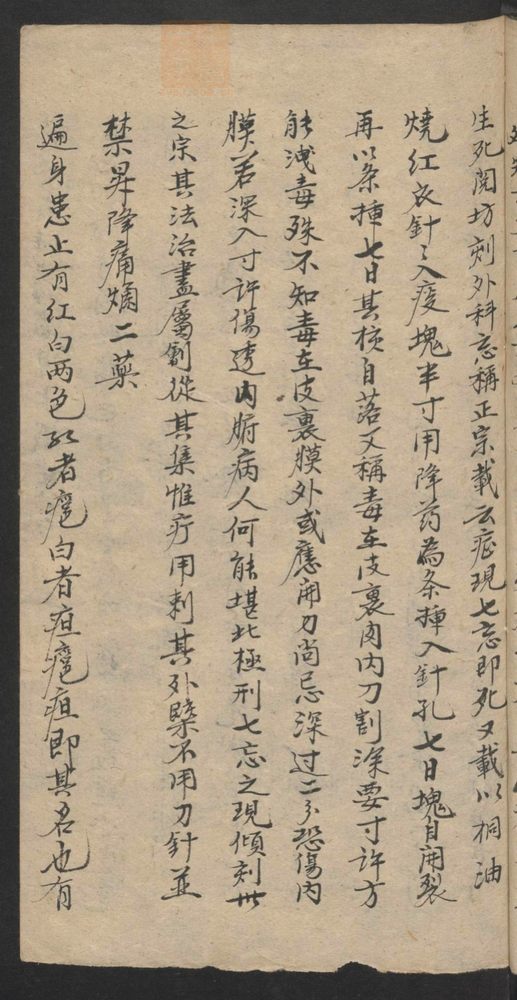 生死関坊刻外科忘稱正宗載云症現七忘即死又載以桐油
燒紅衣針々入疫塊半寸用降药為条揷入針孔七日塊自開裂
再以条揷七日其核自落又稱毒在皮裏肉内刀割深要寸許方
能洩毒殊不知毒在皮裏膜外或應開刀尚忌深过二分恐傷内
膜若深入寸許傷透内腑病人何能堪此極刑七忘之現傾刻世
之宗其法治盡屬劊從其集惟疗用刺其外槩不用刀針並
禁昇降痛爛二藥
遍身患止有紅白两色红者癰白者疽癰疽即其名也有